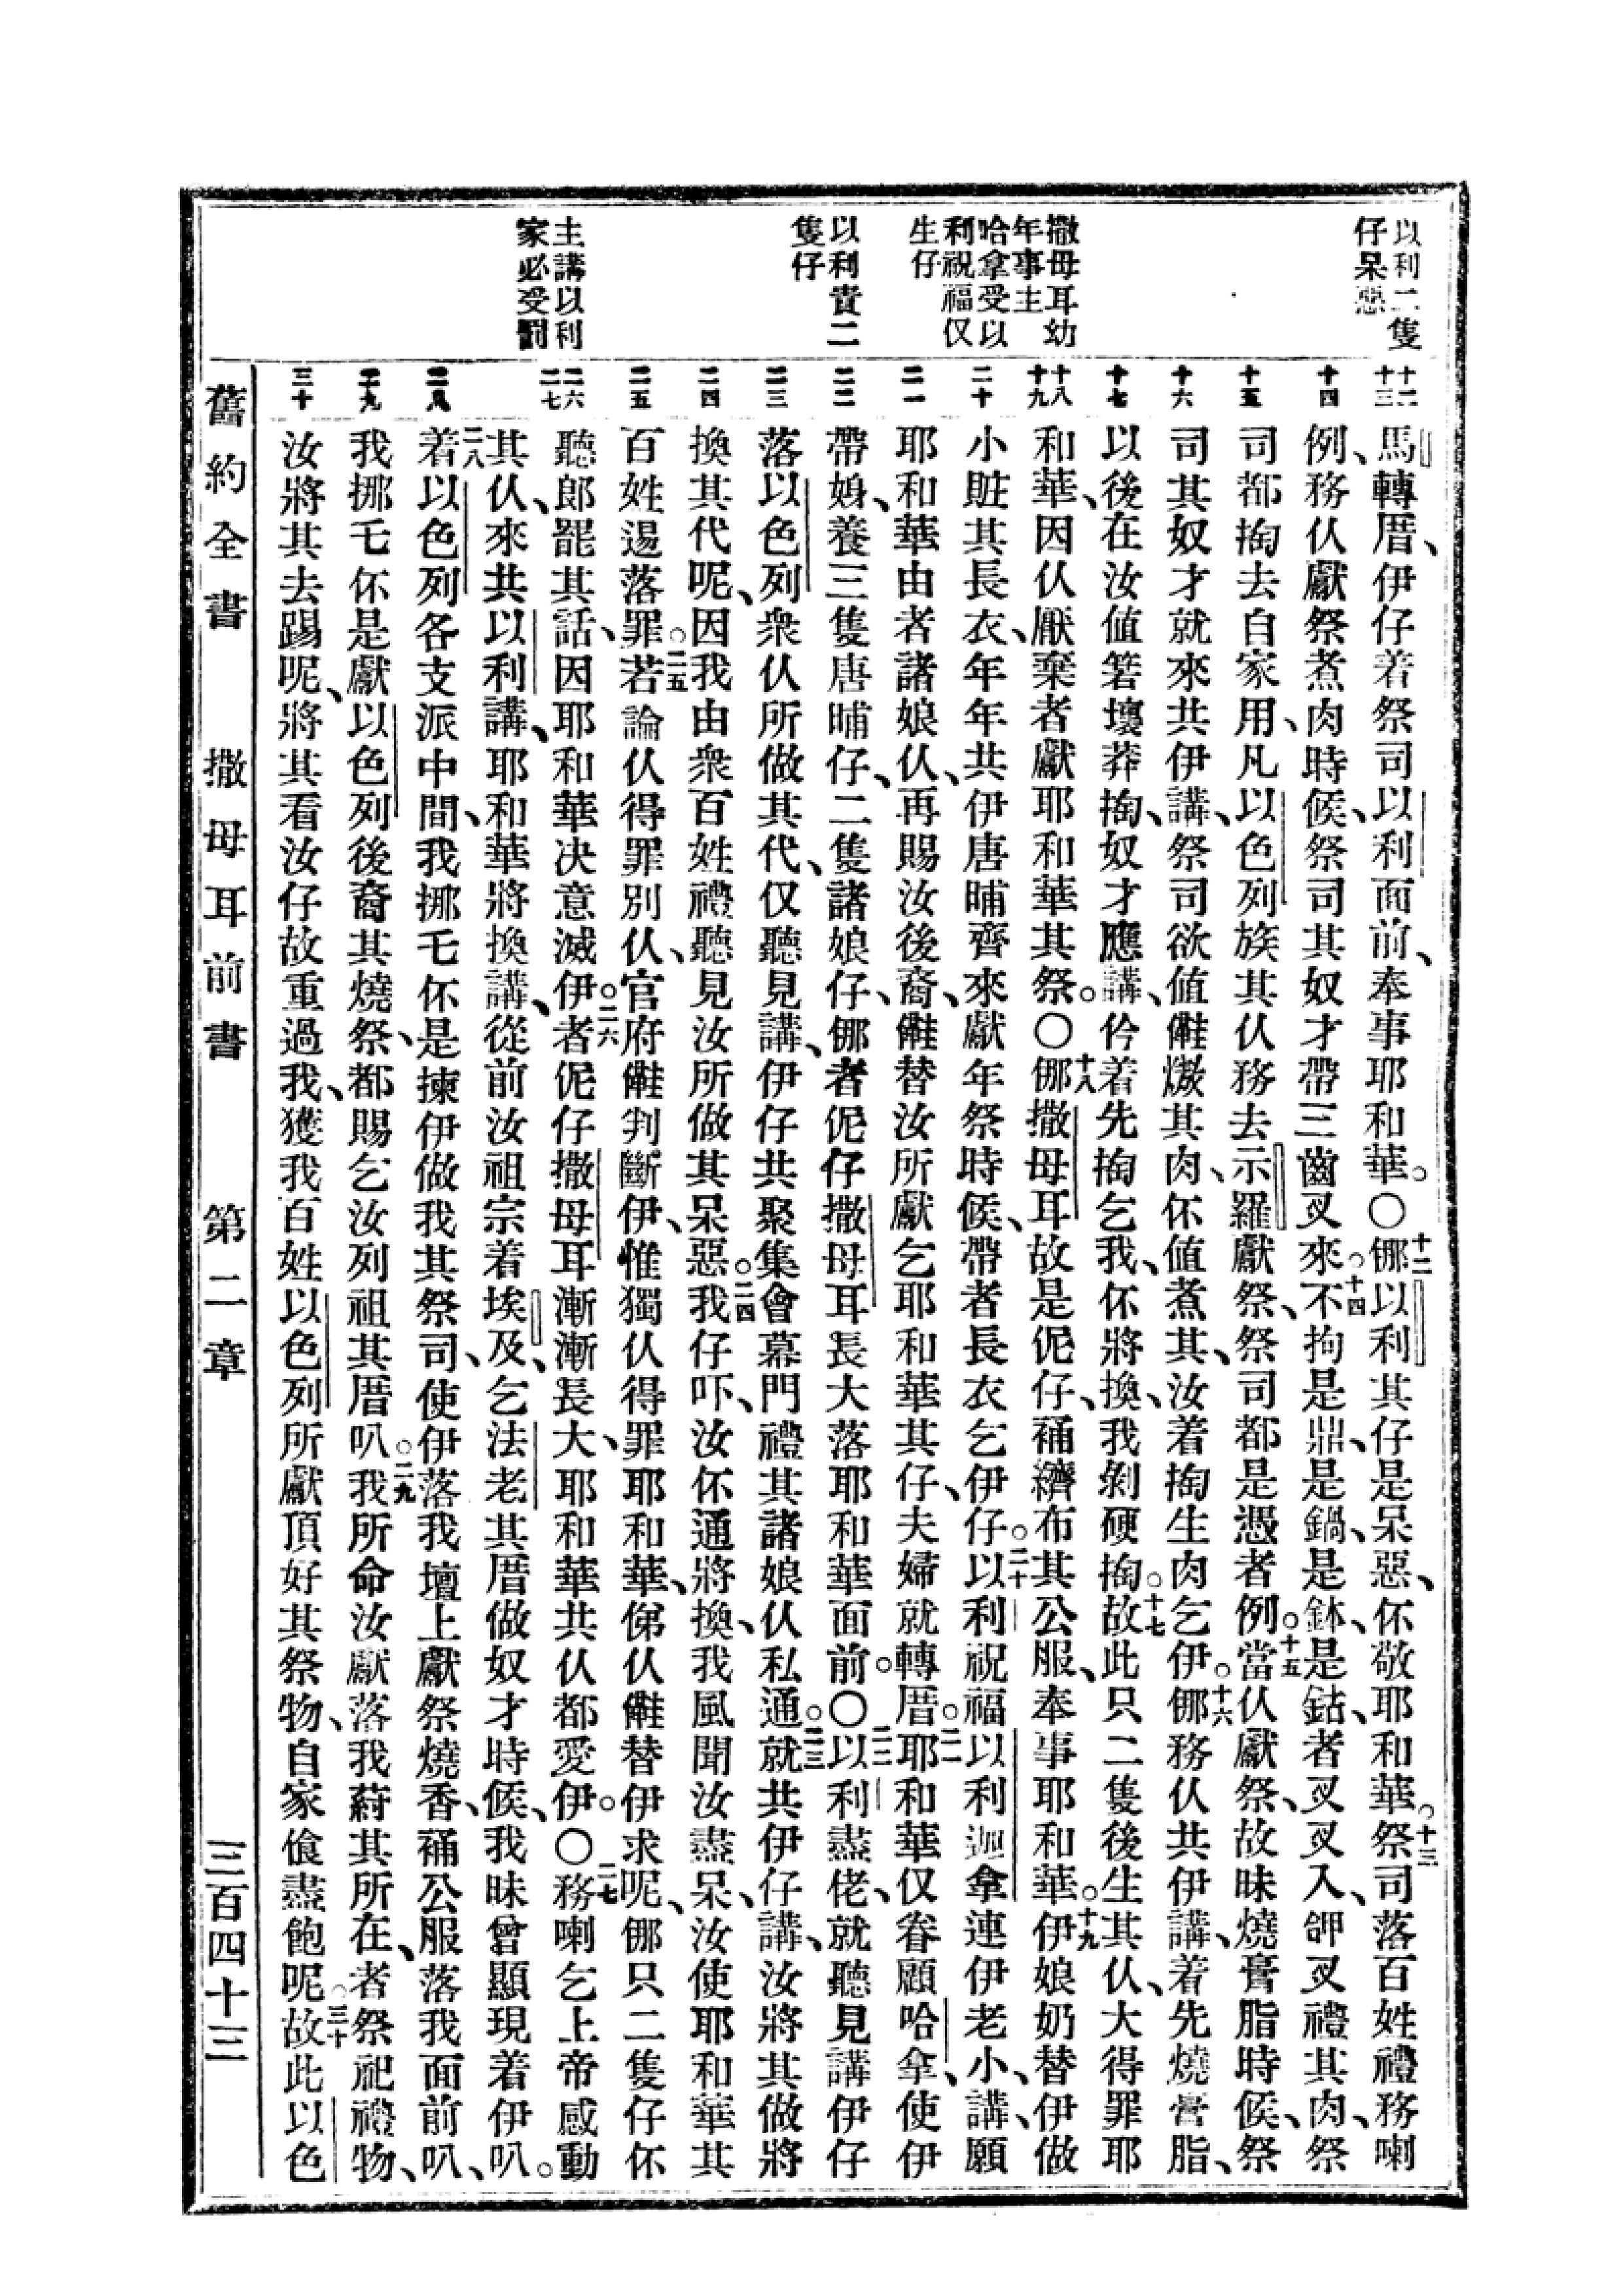 以利二隻
仔呆惡
撒母耳幼
年事主
哈拿受以
利祝福仅
生仔
以利責二
隻仔
主講以利
家必受罰
十二
十三
十四
十五
十六
十七
十八
十九
二十
二一
二二
二三
二四
二五
二六
二七
二八
二九
三十
馬轉厝、伊仔着祭司以利面前、奉事耶和華。〇十二倻以利其仔是呆惡、伓敬耶和華。十三祭司落百姓禮務喇
例、務仈獻祭煮肉時候、祭司其奴才帶三齒叉來。十四不拘是鼎、是鍋、是鉢、是鈷者叉叉入、舺叉禮其肉、祭
司都掏去自家用、凡以色列族其仈務去示羅獻祭、祭司都是憑者例。十五當仈獻祭、故昧燒膏脂時候、祭
司其奴才就來共伊講、祭司欲值㒕燩其肉、伓值煮其、汝着掏生肉乞伊。十六倻務仈共伊講、着先燒膏脂、
以後在汝值箬壞莽掏、奴才應講、仱着先掏乞我、伓將換、我剝硬掏。十七故此只二隻後生其仈、大得罪耶
和華、因仈厭棄者獻耶和華其祭。〇十八倻撒母耳故是伲仔、䘄纃布其公服、奉事耶和華。十九伊娘奶替伊做
小賍其長衣、年年共伊唐晡齊來獻年祭時候、帶者長衣乞伊仔。二十以利祝福以利迦拿連伊老小、講、願
耶和華由者諸娘仈、再賜汝後裔、㒕替汝所獻乞耶和華其仔、夫婦就轉厝。二一耶和華仅眷顧哈拿、使伊
帶㛛、養三隻唐晡仔、二隻諸娘仔、倻者伲仔撒母耳長大落耶和華面前。〇二二以利盡佬、就聽見講伊仔
落以色列衆仈所做其代、仅聽見講、伊仔共聚集會幕門禮其諸娘仈私通。二三就共伊仔講、汝將其做將
換其代呢、因我由衆百姓禮聽見汝所做其呆惡。二四我仔吓、汝伓通將換、我風聞汝盡呆、汝使耶和華其
百姓逿落罪。二五若論仈得罪別仈、官府㒕判斷伊、惟獨仈得罪耶和華、俤仈㒕替伊求呢、倻只二隻仔伓
聽郎罷其話、因耶和華决意滅伊。二六者伲仔撒母耳漸漸長大、耶和華共仈都愛伊。〇二七務喇乞上帝感動
其仈、來共以利講、耶和華將換講、從前汝祖宗着埃及、乞法老其厝做奴才時候、我昧曾顯現着伊叭。
二八着以色列各支派中間、我挪乇伓是揀伊做我其祭司、使伊落我壇上獻祭燒香、䘄公服落我面前叭、
我挪乇伓是獻以色列後裔其燒祭、都賜乞汝列祖其厝叭。二九我所命汝獻落我蒔其所在、者祭祀禮物、
汝將其去踢呢、將其看汝仔故重過我、獲我百姓以色列所獻頂好其祭物、自家偹盡飽呢。三十故此以色
舊約全書 撒母耳前書 第二章 三百四十三